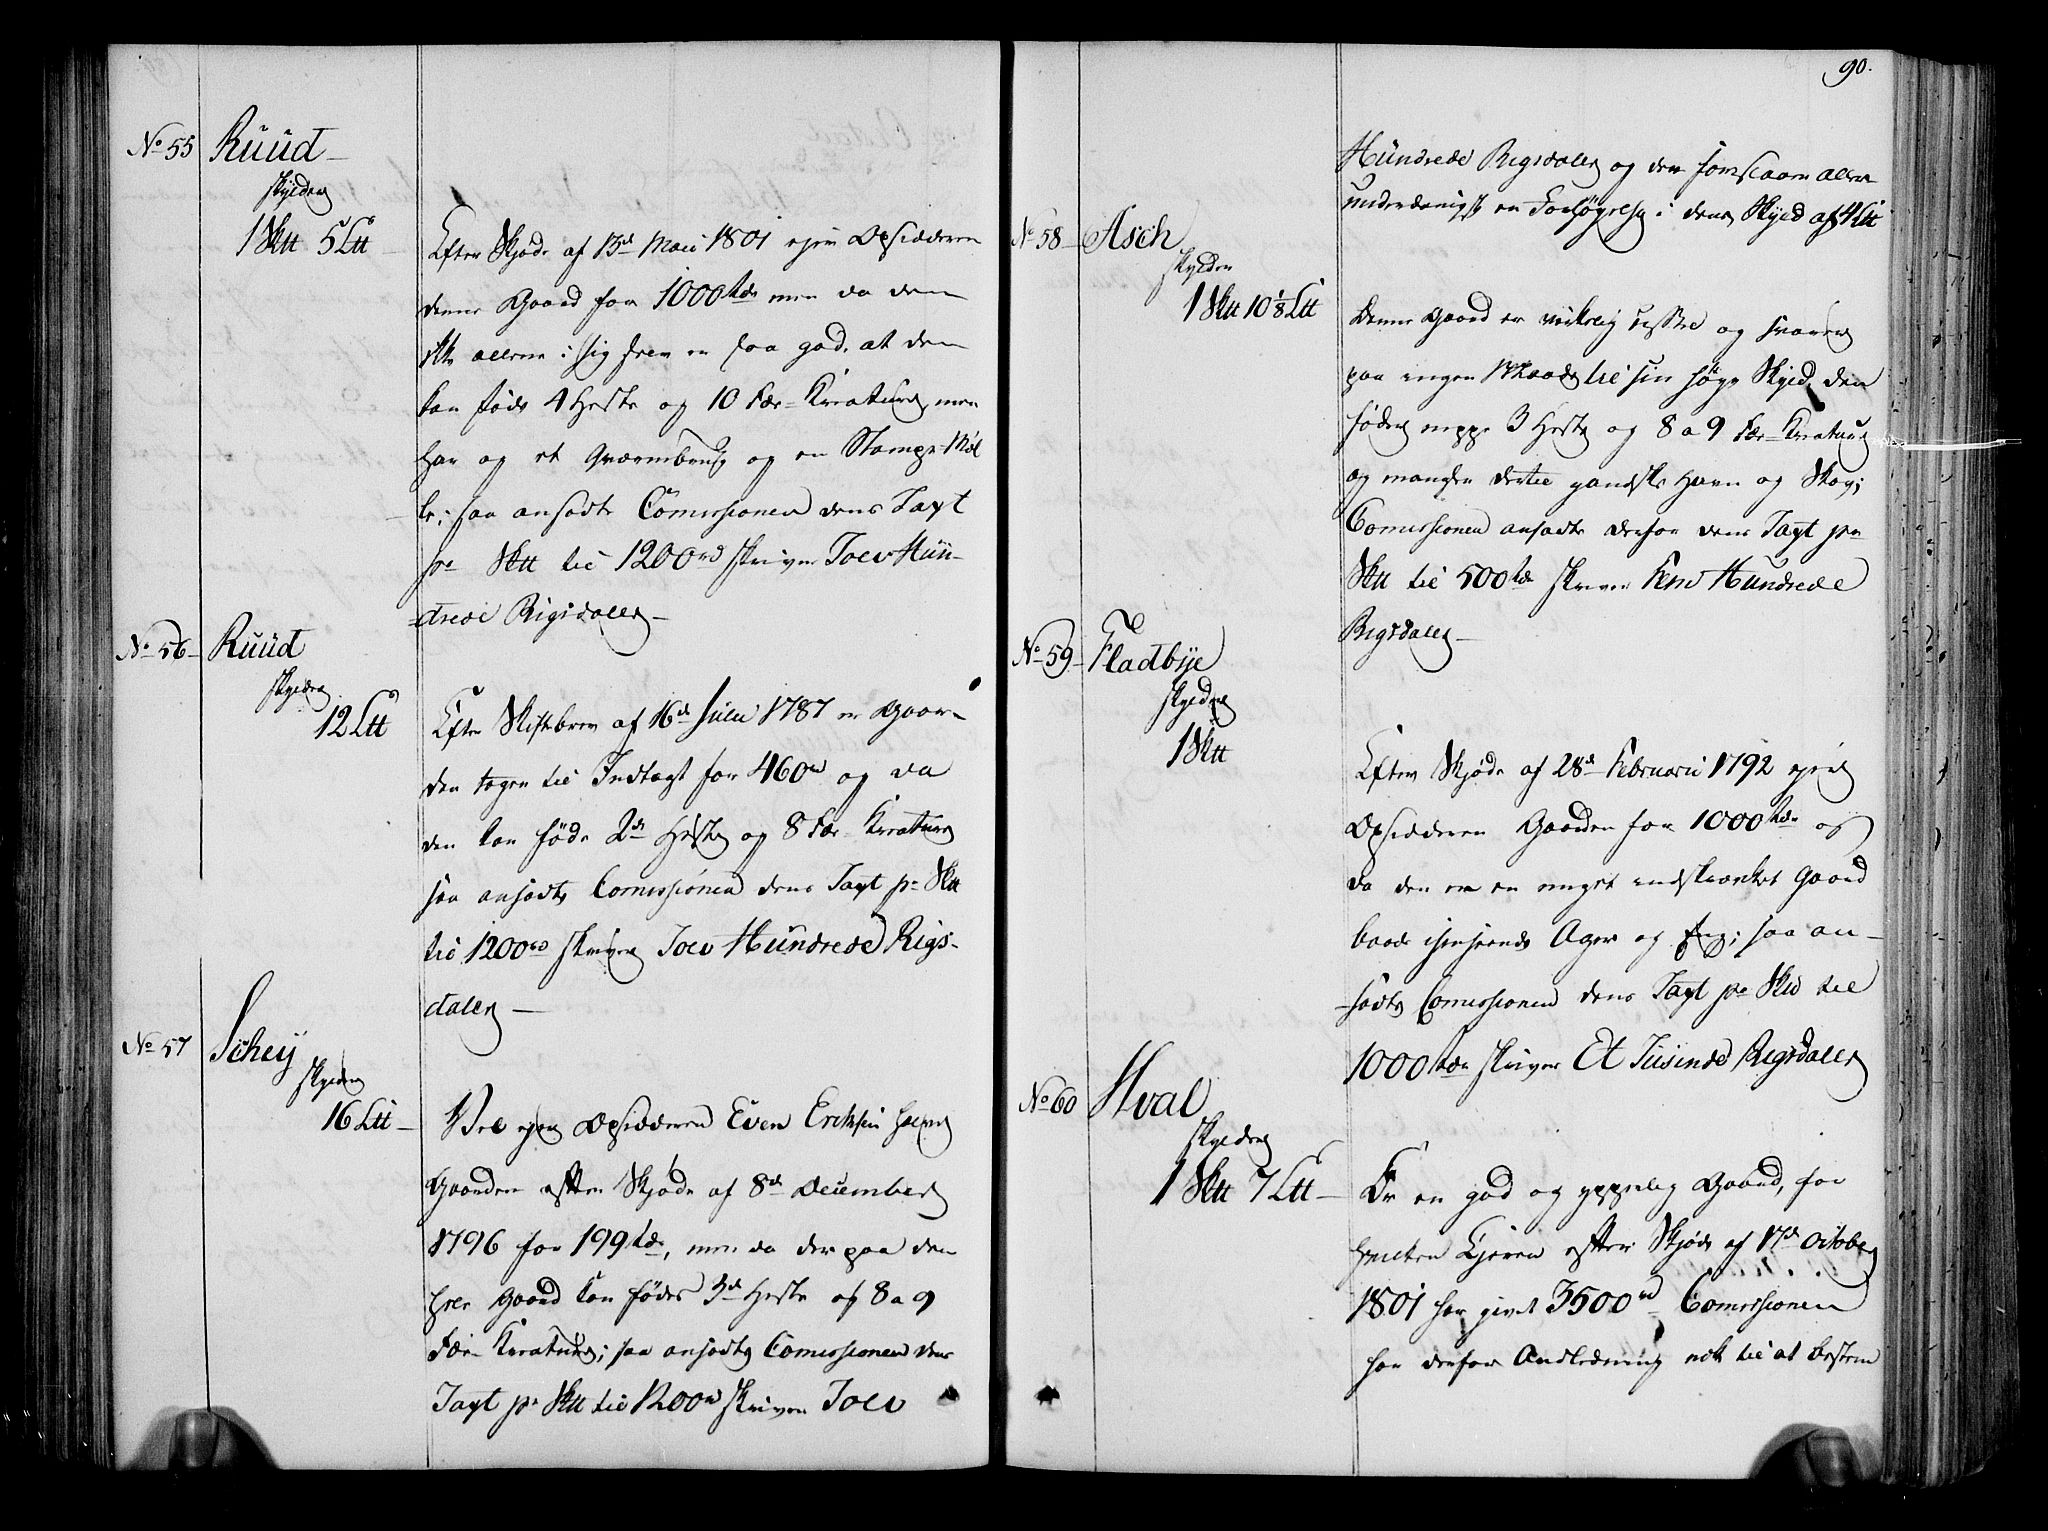 No 55 Ruud
skylder
1 Sktt 5 Ltt
Efter Skjøde af 13d Maii 1801 ejer Opsidderen
denne Gaard for 1000 rdr men da den
ikke allene i sig selv er saa god, at den
kan føde 4 Heste og 10 Fær-Kreature, men
har og et Qværnbrug og en Stampe-Møl
le; saa ansadte Comissionen dens Taxt
pr Sktt til 1200 rd skriver Tolv Hun-
drede Rigsdaler
No 56 Ruud
skylder
12 Ltt
Efter Skiftebrev af 16d Julii 1787 er Gaar-
den tagen til Indtægt for 460 rd og da
den kan føde 2de Heste og 8 Fær-Kreature
saa ansadte Comissionen dens Taxt pr Sktt
til 1200 rd skriver Tolv Hundrede Rigs-
daler
No 57 Schey
skylder
16 Ltt
Vel ejer Opsidderen Even Eriksen
Gaarden efter Skjøde af 8d December
1796 for 199 rdr, men da der paa den
Gaard kan fødes 3d Heste og 8 a 9
Fær-Kreature; saa ansadte Comissionen dens
Taxt pr Sktt til 1200 rd skriver Tolv
90.
Hundrede Rigsdaler og den allerunderdanigst en Forhøyelse i dens Skyld af 4 Ltt
No 58 Asch
skylder
1 Sktt 10 1/8 Ltt
Denne Gaard er virkelig og svarer
paa ingen Maade til sin høye Skyld, den
føder neppe 3 Heste og 8 a 9 Fær-Kreature
og mangler dertil gandske Havn og Skov;
Comissionen ansadte derfor dens Taxt pr
Sktt til 500 rdr skriver Fem Hundrede
Rigsdaler
No 59 Fladbye
skylder
1 Sktt
Efter Skjøde af 28d Februarii 1792 ejer
Opsidderen Gaarden for 1000 rdr og
da den er en meget indskrænket Gaard
baade Ager og Eng; saa an-
sadte Comissionen dens Taxt pr Sktt til
1000 rdr skriver Et Tusinde Rigsdaler
No 60 Hval
skylder
1 Sktt 7 Ltt
Er en god og ypperlig Gaard, for
hvilken Ejeren efter Skjøde af 17d October
1801 har givet 3500 rd Comissionen
har derfor Andledning nok til at bestem